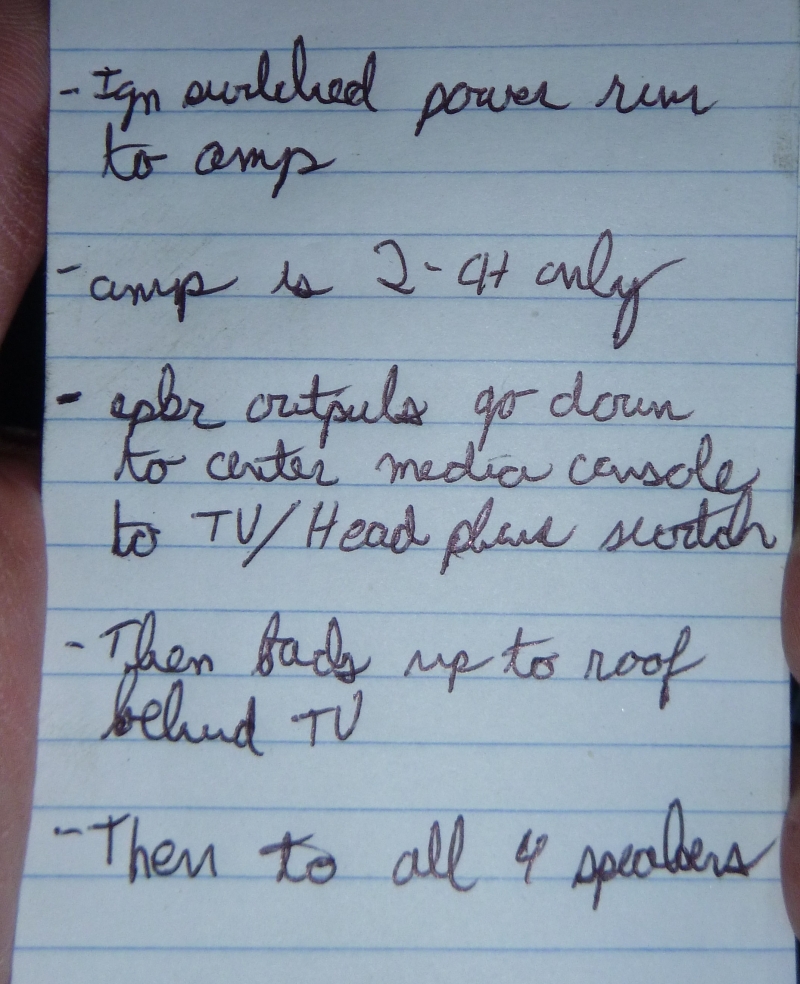 - Ign switched power run
to amp
- amp is 2-CH only
- spkr outputs go down
to center media console
to TV/Head phone switch
- Then back up to roof
behind TV
- Then to all 4 speakers